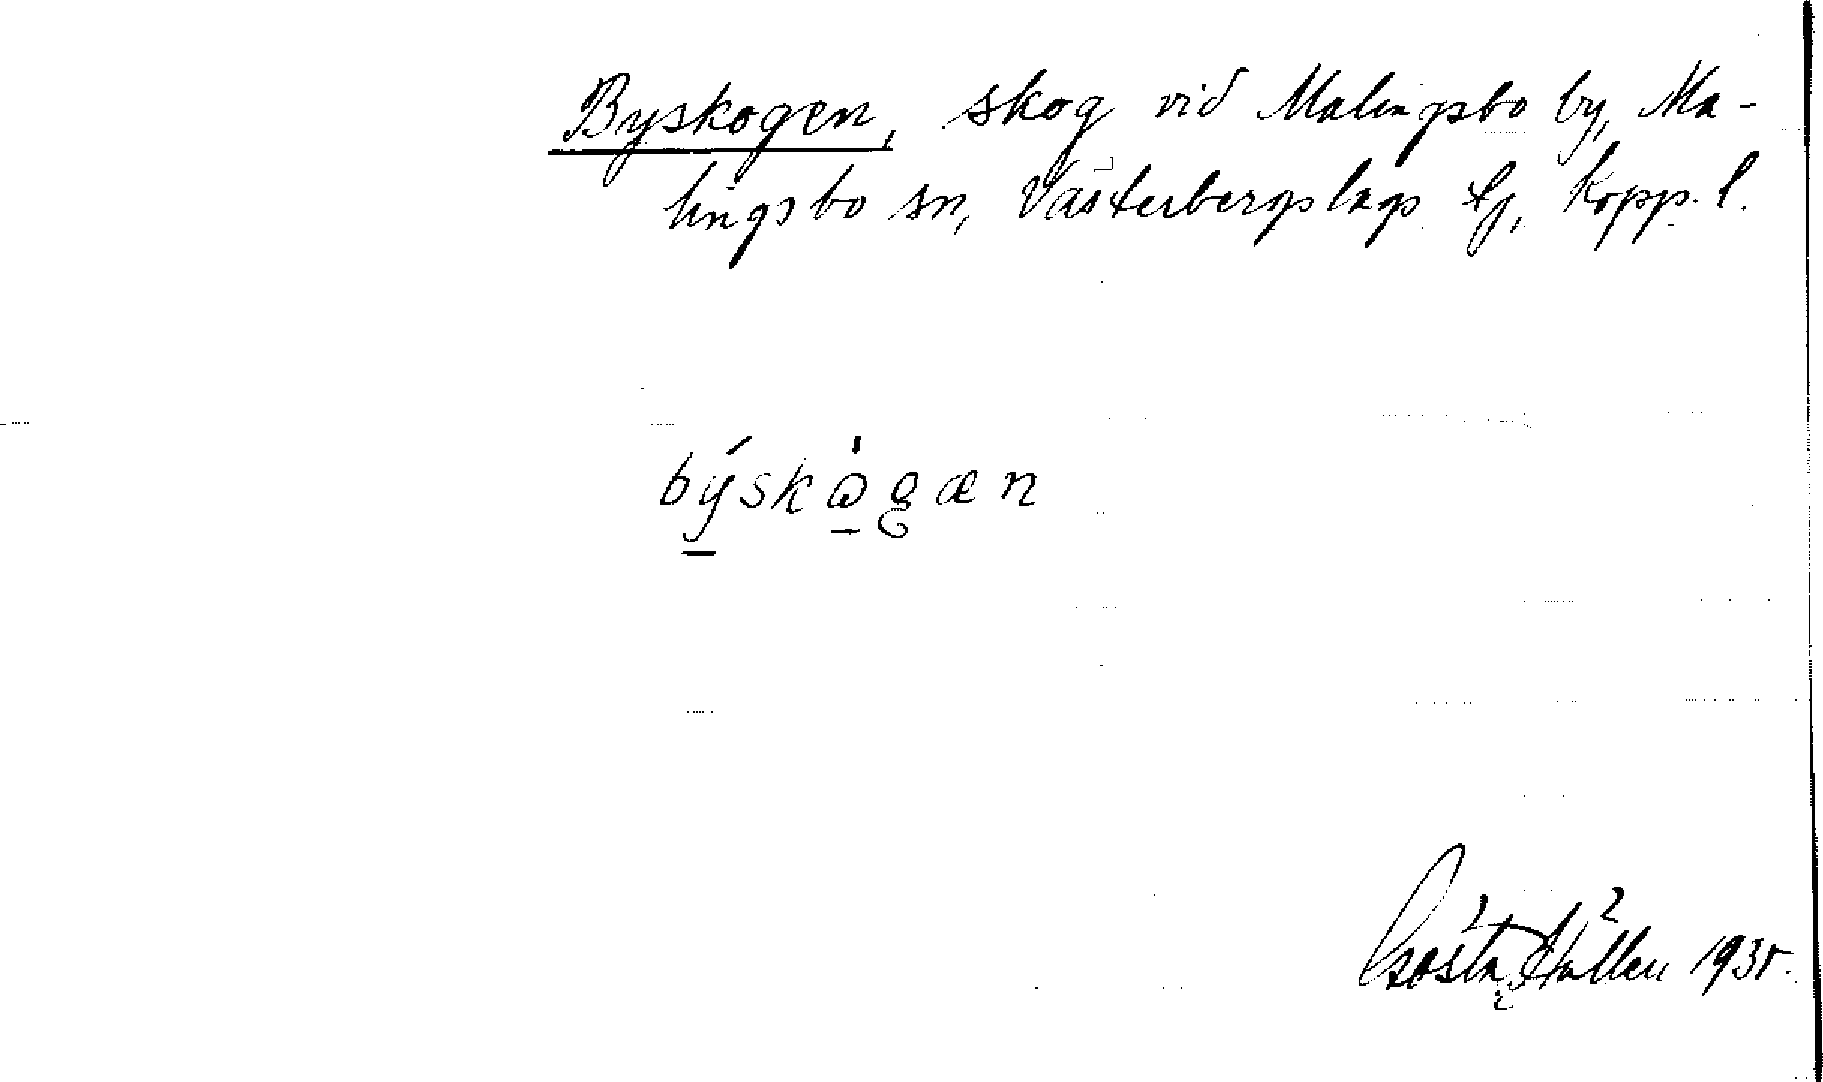 Byskogen, skog vid Malingsbo by, Ma-
lingsbo sn, Västerbergslags tg, Kopp. l.
býskὠgæn
Gösta Hallen 1935.